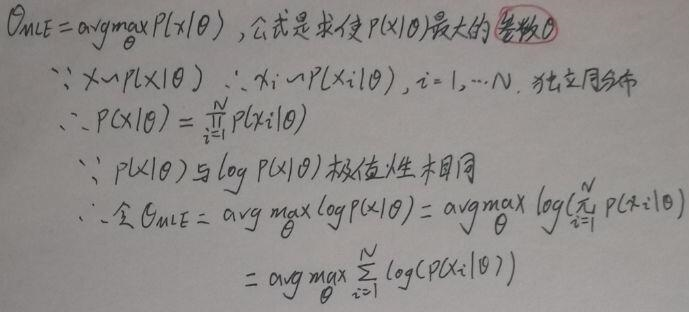 θMLE = argmax_θ P(x|θ), 公式是求使P(x|θ)最大的参数θ
∵ x∼p(x|θ) ∴ xi∼P(xi|θ), i=1,…N. 独立同分布
∴ P(x|θ) = ∏_{i=1}^{N} P(xi|θ)
∵ p(x|θ)与log P(x|θ)极值性相同
∴ 令θMLE = arg max_θ log P(x|θ) = argmax_θ log(∏_{i=1}^{N} P(xi|θ)
= arg max_θ ∑_{i=1}^{N} log(P(xi|θ))